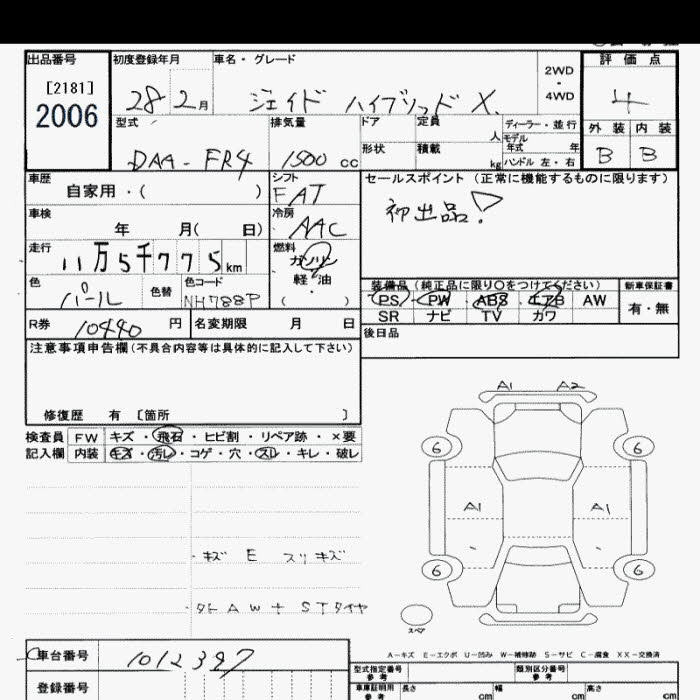 出品番号 初度登録年月 車名・グレード 評価点
[2181]
2006
28 2月 ジェイド ハイブリッド X 2WD・4WD 4
型式 排気量 ドア 定員 人 ディーラー・並行 外装 内装
モデル年式 年
DAA-FR4 1500cc 形状 積載 kg ハンドル 左・右 B B
車歴 シフト セールスポイント(正常に機能するものに限ります)
自家用・( ) FAT
初出品!
車検 冷房
年 月( 日) AAC
走行 燃料
11万5千775km ガソリン
軽・油
( )
色 色替 色コード
パール NH788P
装備品(純正品に限り○をつけてください) 新車保証書
PS PW ABS エアB AW 有・無
SR ナビ TV カワ
R券 10490円 名変期限 月 日 後日品
注意事項申告欄(不具合内容等は具体的に記入して下さい)
修復歴 有 〔箇所 〕
検査員 FW キズ・飛石・ヒビ割・リペア跡・×要
記入欄 内装 キズ・汚レ・コゲ・穴・スレ・キレ・破レ
A1 A2
6 6
A1 A1
6 6
スペア
・キズ E スリキズ
・タトAW+STタイヤ
A-キズ E-エクボ U-凹み W-補修跡 S-サビ C-腐食 XX-交換済
車台番号 1012397
登録番号
型式指定番号 参考 類別区分番号 参考
車庫証明用 参考 長さ cm 幅 cm 高さ cm